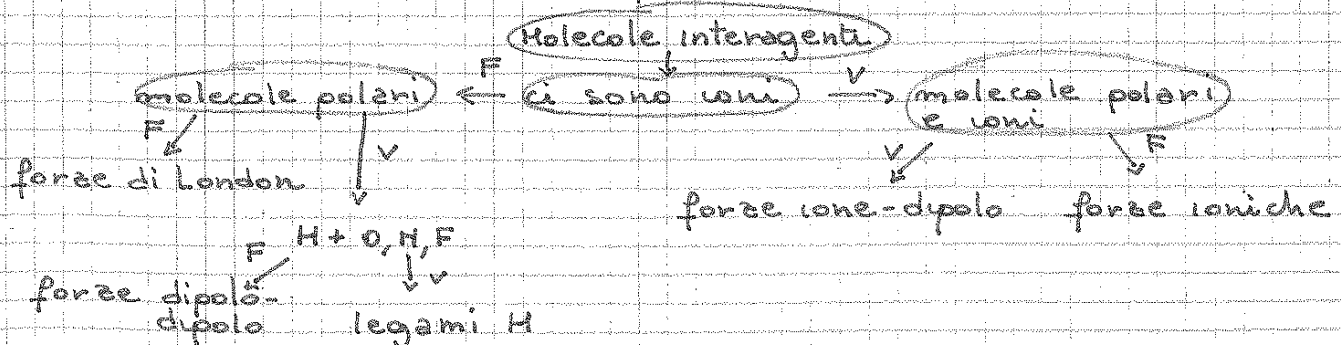 Molecole interagenti
F
V
molecole polari
ci sono ioni
molecole polari
e ioni
F
V
V
F
forze di London
forze ione-dipolo
forze ioniche
H + O, N, F
F
V
forze dipolo-
dipolo
legami H